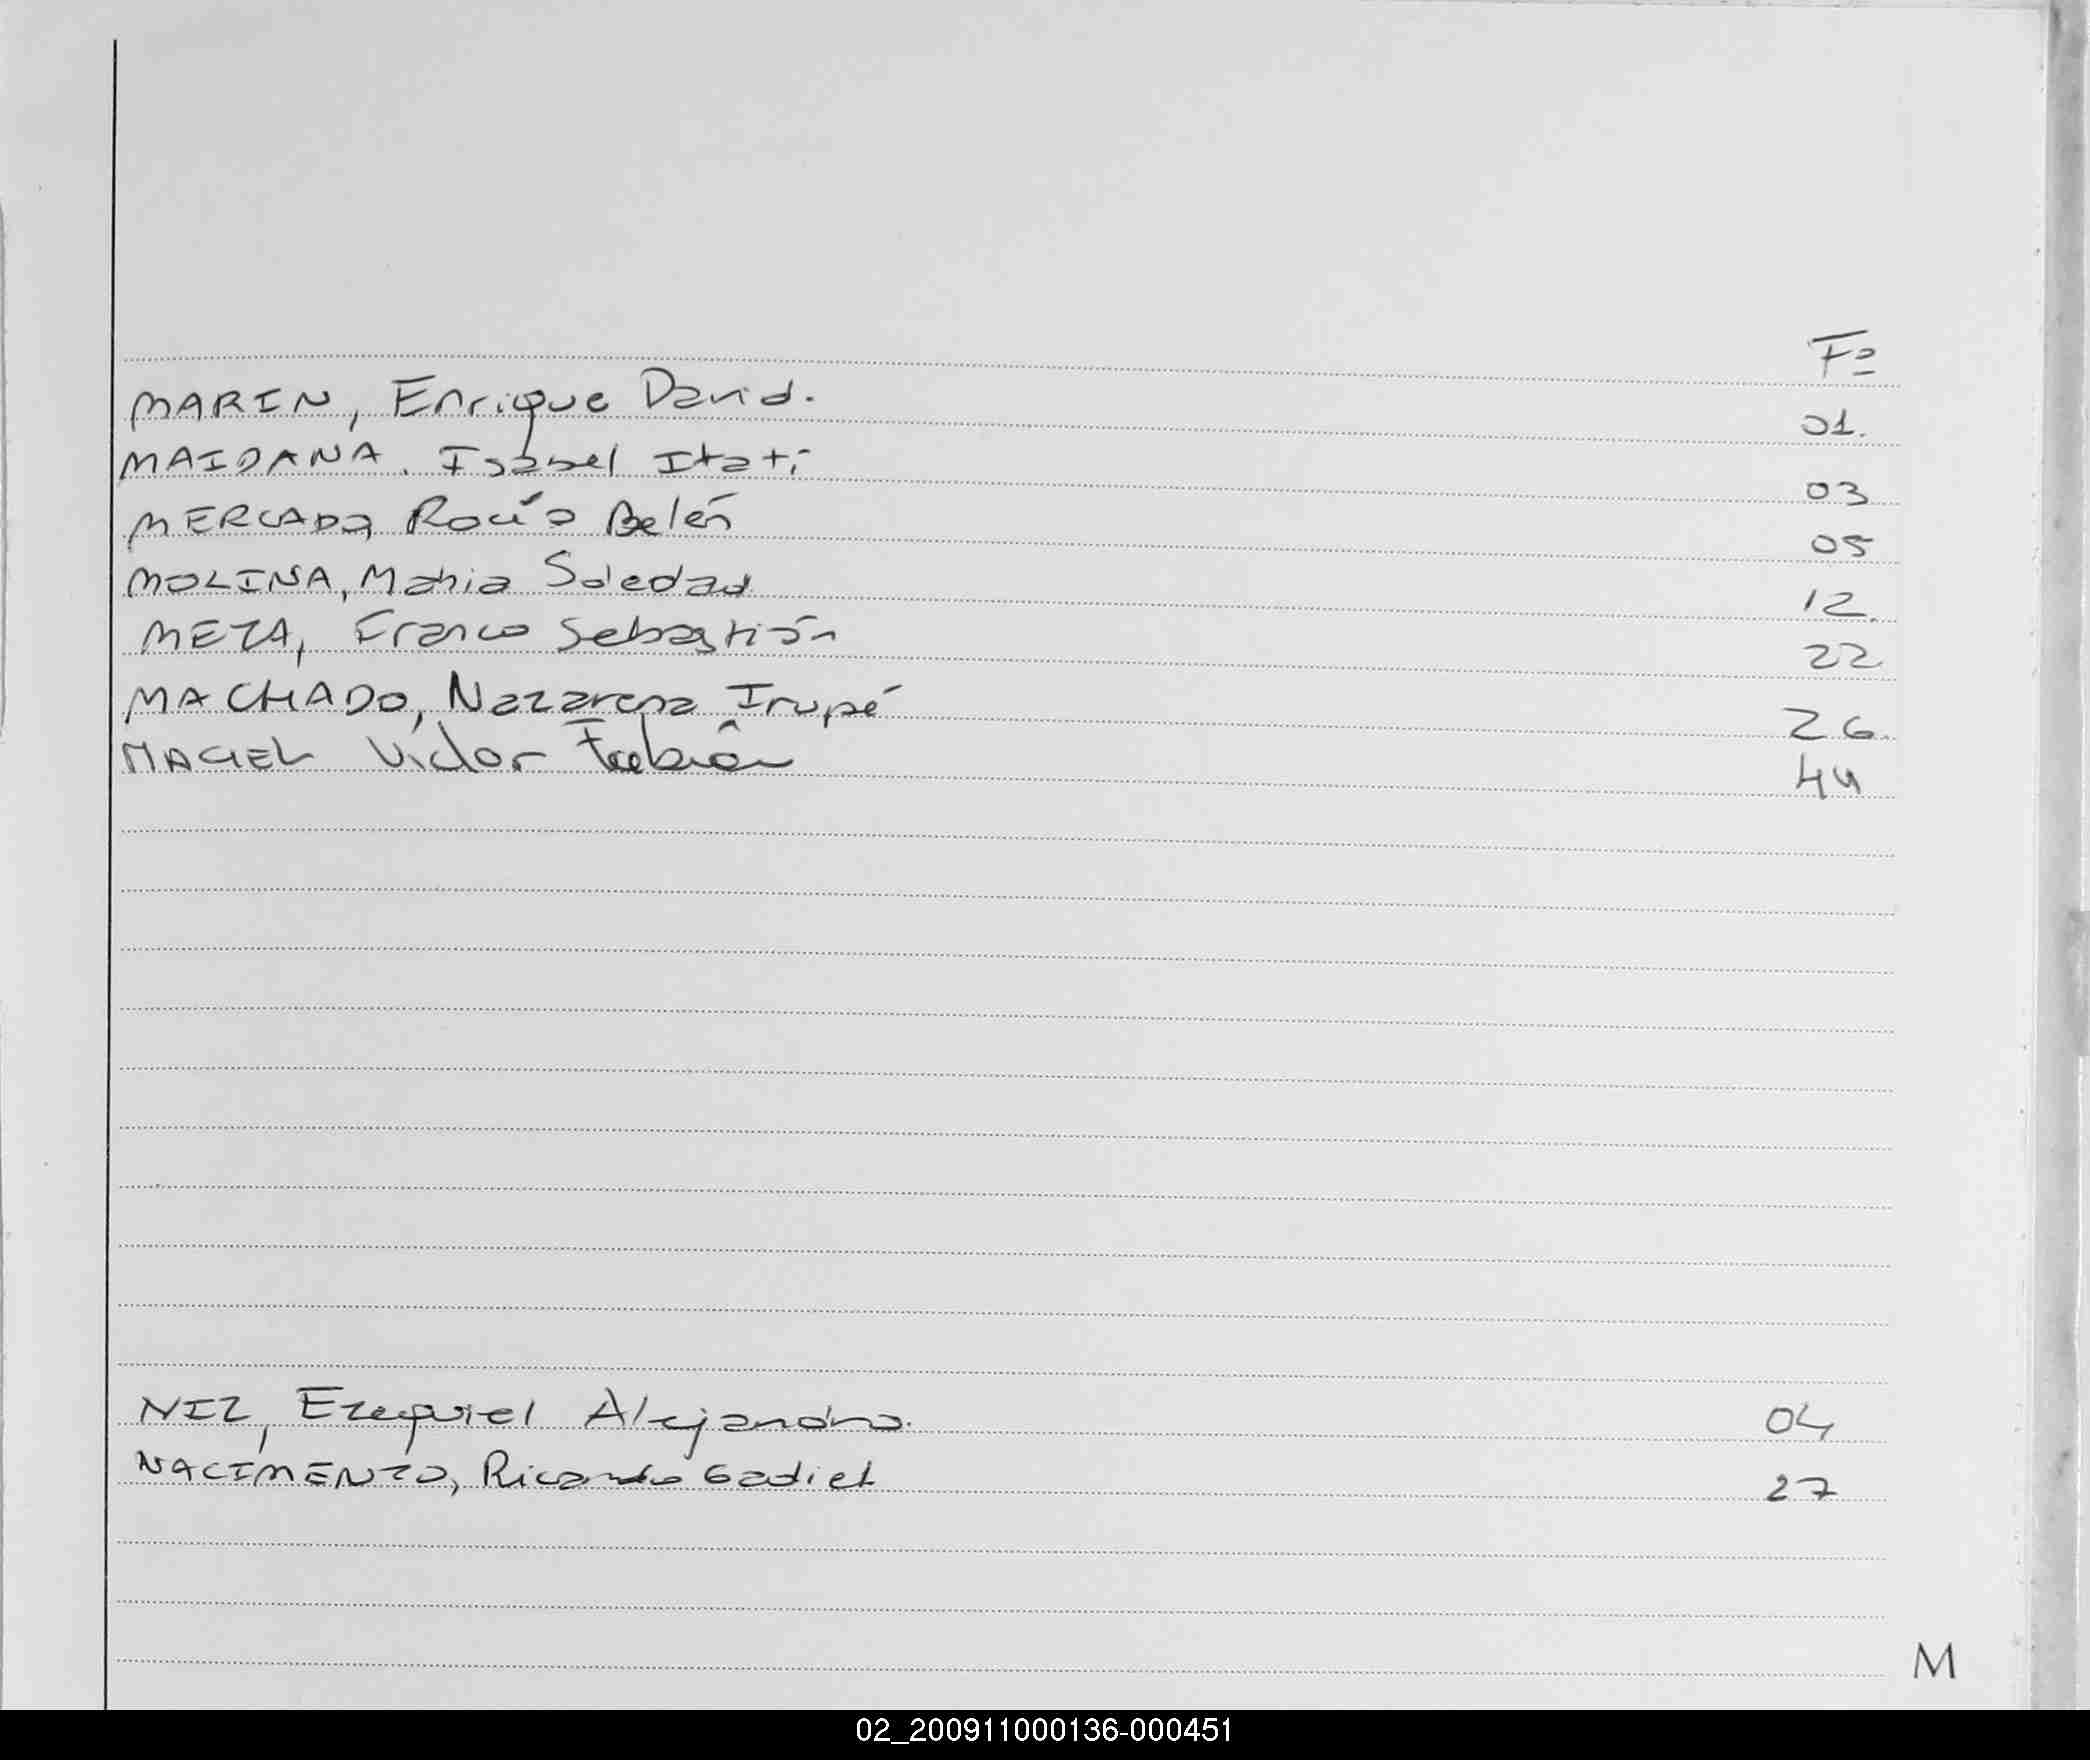 Fo
MARIN, Enrique David. 01.
MAIDANA. Isabel Itatí 03
MERCADO, Rocío Belén 05
MOLINA, Maria Soledad 12.
MEZA, Franco Sebastián 22
MACHADO, Nazarena Irupé 26.
MACIEL Victor Fabián 44
NIZ, Ezequiel Alejandro. 04
NACIMENTO, Ricardo Gadiel 27
M
02_200911000136-000451